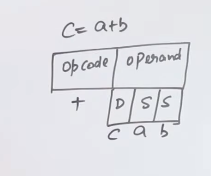 C= a+b
opcode operand
+ D S S
C a b